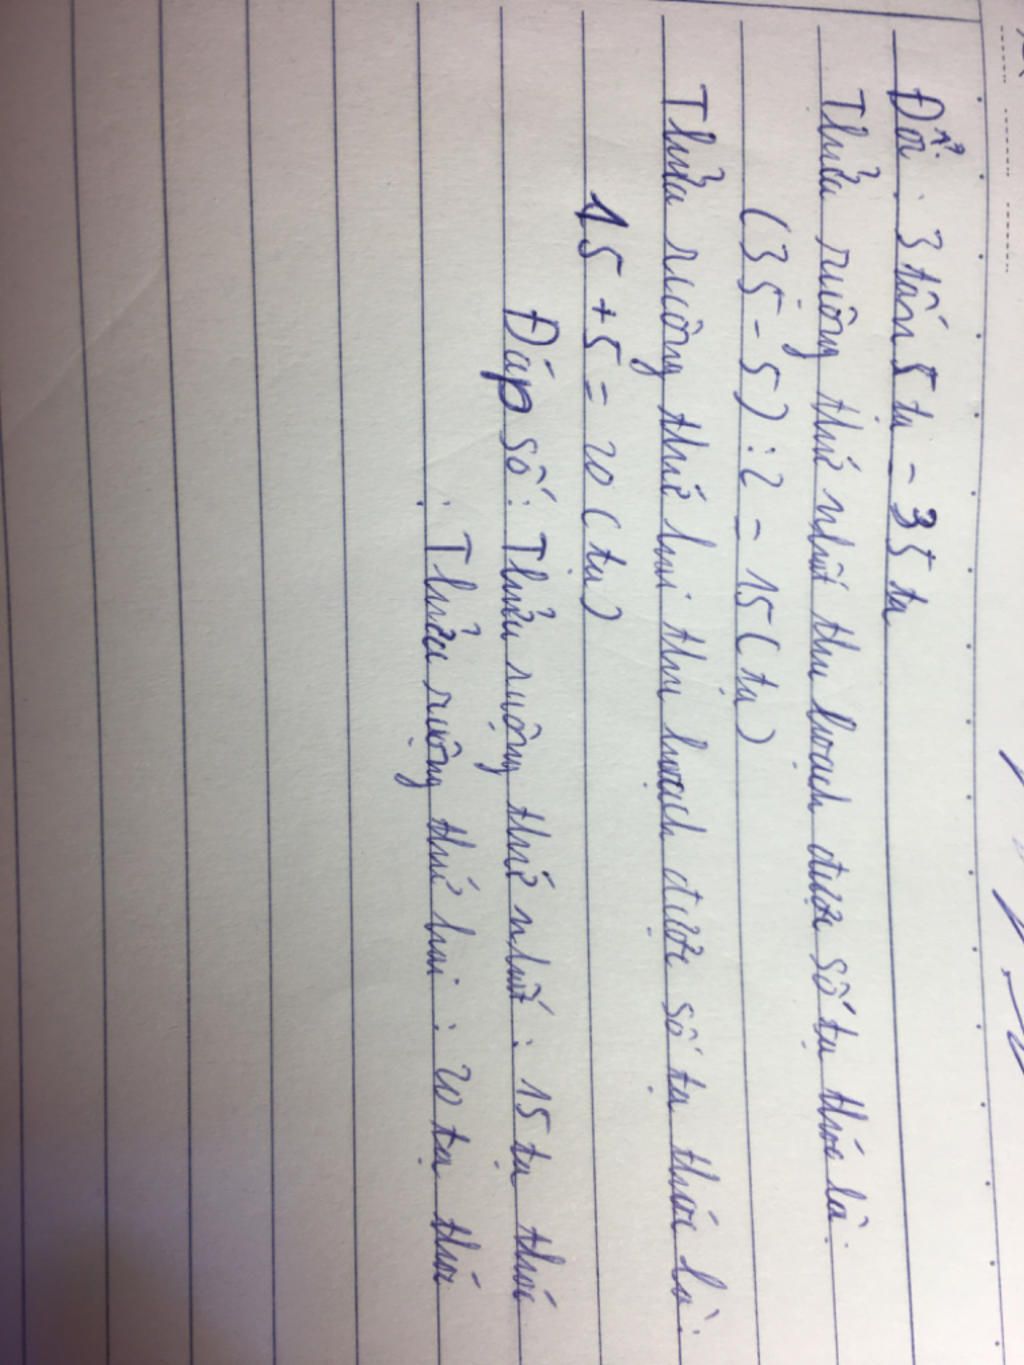 Đổi : 3 tấn 5 tạ = 35 tạ
Thửa ruộng thứ nhất thu hoạch được số tạ thóc là :
(35 - 5) : 2 = 15 (tạ)
Thửa ruộng thứ hai thu hoạch được số tạ thóc là :
15 + 5 = 20 (tạ)
Đáp số : Thửa ruộng thứ nhất : 15 tạ thóc
: Thửa ruộng thứ hai : 20 tạ thóc